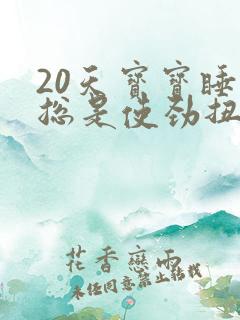 20天宝宝睡
总是使劲扭
花香恋雨
未经同意禁止转载